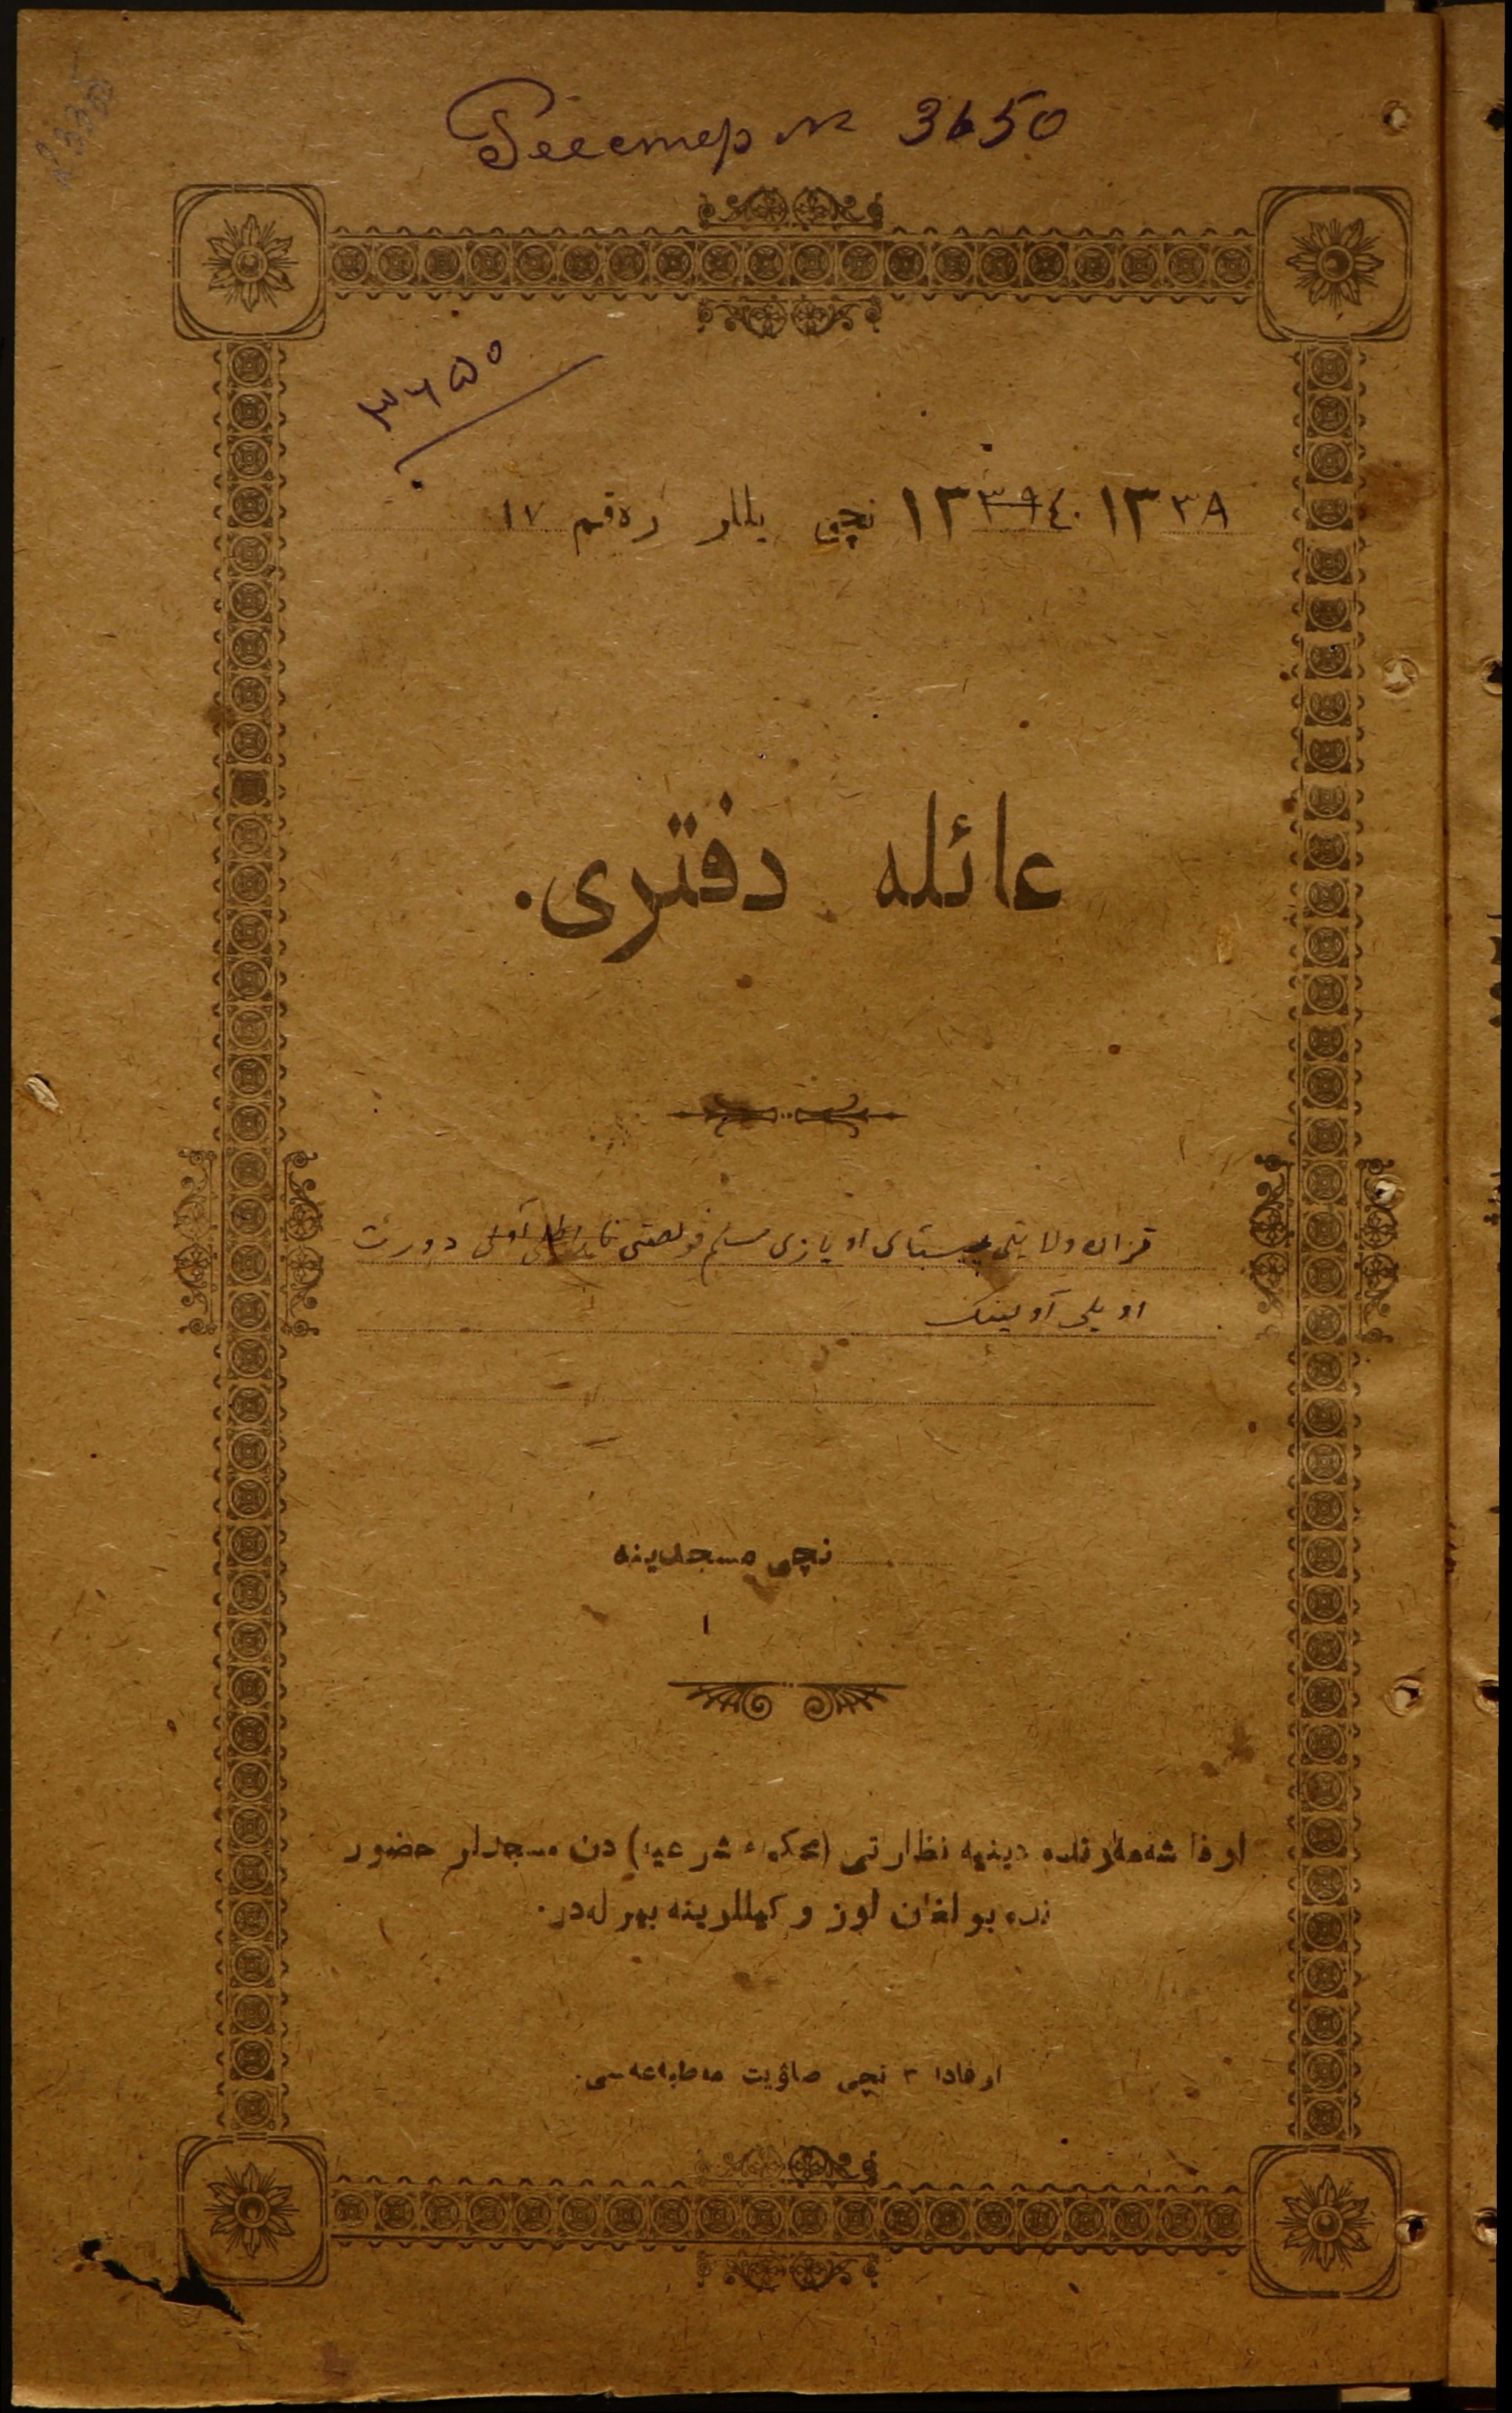 Реестр № 3650
٣٦٥٠
١٣٣٨ ١٣٣٩٤٠ نچی یللر رەقم ١٧
عائله دفتری.
قزان ولایتی اویازی دورت
اویلی آولینڭ
نچی مسجدینه
١
اوفا شەھرندە دینیە نظارتی (محکمۀ شرعیه) دن مسجدلر حضور
ندە بولغان اوز وکیللرینە بیرلەدر.
اوفادا ٣ نچی صاۋیت مەطبەعەسی.